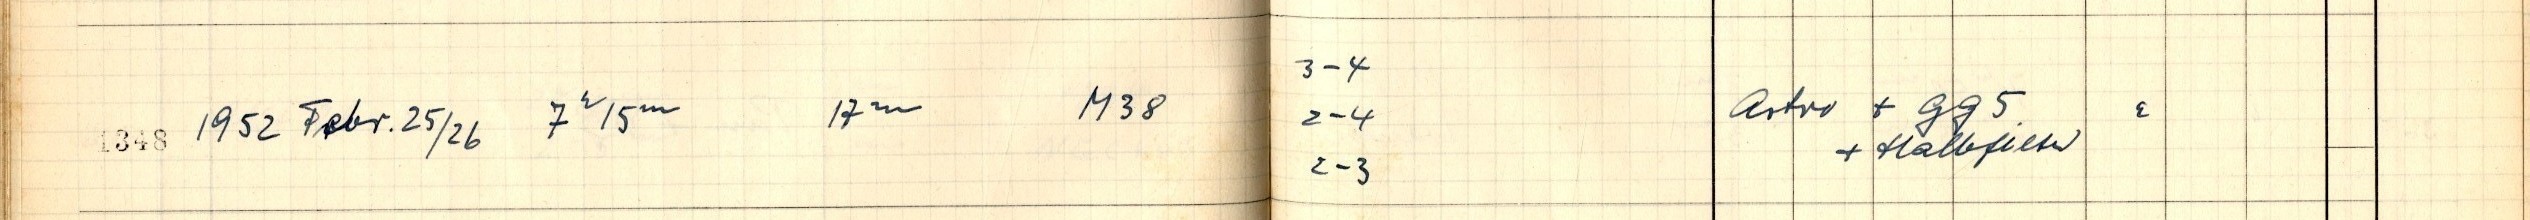 3-4
1348 1952 Febr. 25/26 7h 15m 17m M38 2-4 Astro + GG5 ε
+ Halbfilter
2-3